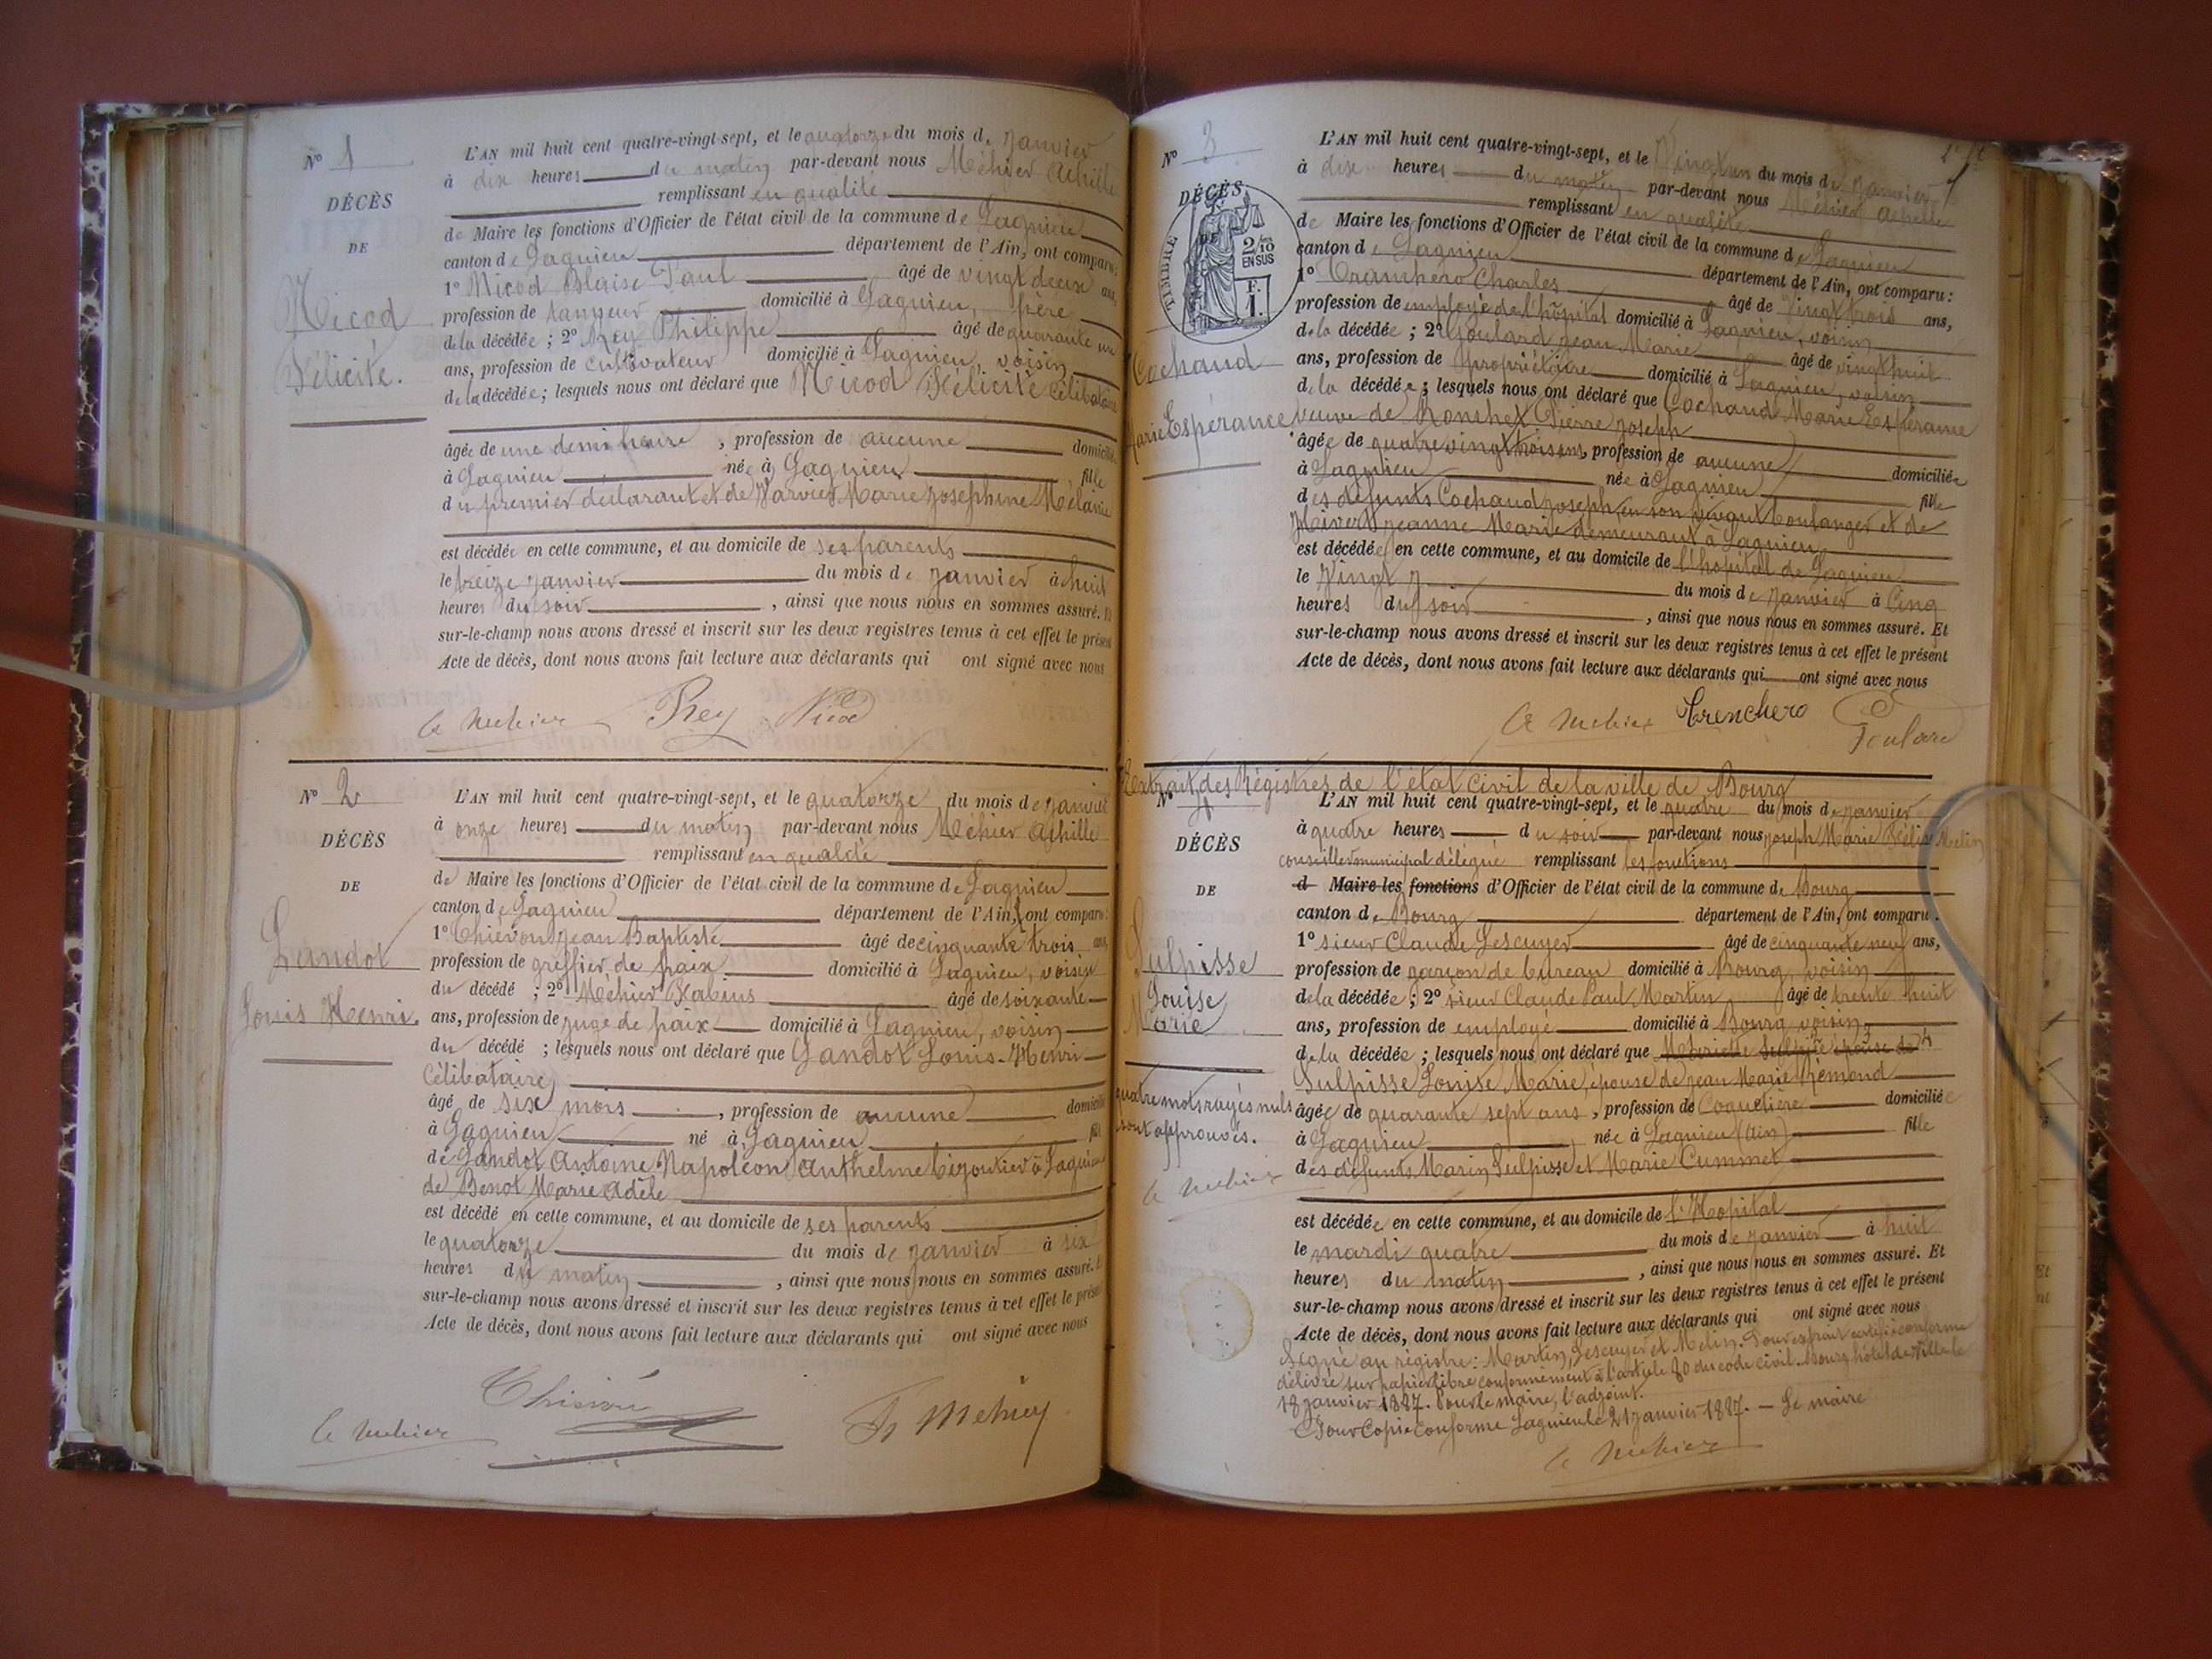 N° 1
DÉCÈS
DE
Nicod
Félicité.
L'AN mil huit cent quatre-vingt-sept, et le quatorze du mois de Janvier
à dix heures du matin par-devant nous Méhier Achille
remplissant en qualité
de Maire les fonctions d'Officier de l'état civil de la commune de Lagnieu
canton de Lagnieu département de l'Ain, ont comparu:
1° Nicod Blaise Paul âgé de vingt deux ans,
profession de tanneur domicilié à Lagnieu, père
de la décédée; 2° Prey Philippe âgé de quarante un
ans, profession de cultivateur domicilié à Lagnieu, voisin
de la décédée; lesquels nous ont déclaré que Nicod Félicité célibataire
âgée de une demi heure, profession de aucune domiciliée
à Lagnieu née à Lagnieu fille
du premier déclarant et de Varvier Marie Josephine Mélanie
est décédée en cette commune, et au domicile de ses parents
le treize janvier du mois de janvier à huit
heures du soir, ainsi que nous nous en sommes assuré. Et
sur-le-champ nous avons dressé et inscrit sur les deux registres tenus à cet effet le présent
Acte de décès, dont nous avons fait lecture aux déclarants qui ont signé avec nous
A Mehier Prey Nicod
N° 2
DÉCÈS
DE
Landot
Louis Henri.
L'AN mil huit cent quatre-vingt-sept, et le quatorze du mois de janvier
à onze heures du matin par-devant nous Méhier Achille
remplissant en qualité
de Maire les fonctions d'Officier de l'état civil de la commune de Lagnieu
canton de Lagnieu département de l'Ain, ont comparu:
1° Jean Baptiste âgé de cinquante trois ans,
profession de greffier de paix domicilié à Lagnieu, voisin
du décédé; 2° Méhier Fabius âgé de soixante
ans, profession de juge de paix domicilié à Lagnieu, voisin
du décédé; lesquels nous ont déclaré que Landot Louis-Henri
célibataire
âgé de six mois, profession de aucune domicilié
à Lagnieu né à Lagnieu fils
de Landot Antoine Napoléon Anthelme bijoutier à Lagnieu
de Benot Marie Adèle
est décédé en cette commune, et au domicile de ses parents
le quatorze du mois de janvier à six
heures du matin, ainsi que nous nous en sommes assuré. Et
sur-le-champ nous avons dressé et inscrit sur les deux registres tenus à cet effet le présent
Acte de décès, dont nous avons fait lecture aux déclarants qui ont signé avec nous
A Mehier F Mehier
N° 3
DÉCÈS
DE
TIMBRE
2/10
EN SUS
F.
1.
Cochaud
Marie Espérance
L'AN mil huit cent quatre-vingt-sept, et le vingt un du mois de janvier
à dix heures du matin par-devant nous Méhier Achille
remplissant en qualité
de Maire les fonctions d'Officier de l'état civil de la commune de Lagnieu
canton de Lagnieu département de l'Ain, ont comparu:
1° Trenchero Charles âgé de vingt trois ans,
profession de employé de l'hôpital domicilié à Lagnieu, voisin
de la décédée; 2° Goulard Jean Marie âgé de vingt huit
ans, profession de propriétaire domicilié à Lagnieu, voisin
de la décédée; lesquels nous ont déclaré que Cochaud Marie Espérance
veuve de Pierre Joseph
âgée de quatre vingt trois ans, profession de aucune domiciliée
à Lagnieu née à Lagnieu fille
des défunts Cochaud Joseph en son vivant boulanger et de
Jeanne Marie demeurant à Lagnieu
est décédée en cette commune, et au domicile de l'hopital de Lagnieu
le vingt du mois de janvier à cinq
heures du soir, ainsi que nous nous en sommes assuré. Et
sur-le-champ nous avons dressé et inscrit sur les deux registres tenus à cet effet le présent
Acte de décès, dont nous avons fait lecture aux déclarants qui ont signé avec nous
A Mehier Trenchero Goulard
Extrait des Régistres de l'état civil de la ville de Bourg
N° 4
DÉCÈS
DE
Sulpisse
Louise
Marie
quatre mots rayés nuls
sont approuvés.
A Mehier
L'AN mil huit cent quatre-vingt-sept, et le quatre du mois de janvier
à quatre heures du soir par-devant nous Joseph Marie Félix Melin
conseiller municipal délégué remplissant les fonctions
d Maire les fonctions d'Officier de l'état civil de la commune de Bourg
canton de Bourg département de l'Ain, ont comparu:
1° sieur Claude Lescuyer âgé de cinquante neuf ans,
profession de garçon de bureau domicilié à Bourg, voisin
de la décédée; 2° sieur Claude Paul Martin âgé de trente huit
ans, profession de employé domicilié à Bourg voisin
de la décédée; lesquels nous ont déclaré que
Sulpisse Louise Marie, épouse de Jean Marie Rémond
âgée de quarante sept ans, profession de Coquetière domiciliée
à Lagnieu née à Lagnieu (Ain) fille
des défunts Marin Sulpisse et Marie Cummet
est décédée en cette commune, et au domicile de l'Hopital
le mardi quatre du mois de janvier à huit
heures du matin, ainsi que nous nous en sommes assuré. Et
sur-le-champ nous avons dressé et inscrit sur les deux registres tenus à cet effet le présent
Acte de décès, dont nous avons fait lecture aux déclarants qui ont signé avec nous
Signé au régistre: Martin, Lescuyer et Melin. Pour extrait certifié conforme
délivré sur papier libre conformément à l'article 80 du code civil. Bourg hôtel de ville le
18 janvier 1887. Pour le maire, l'adjoint.
Pour Copie Conforme Lagnieu le 21 janvier 1887. — Le maire
A Mehier